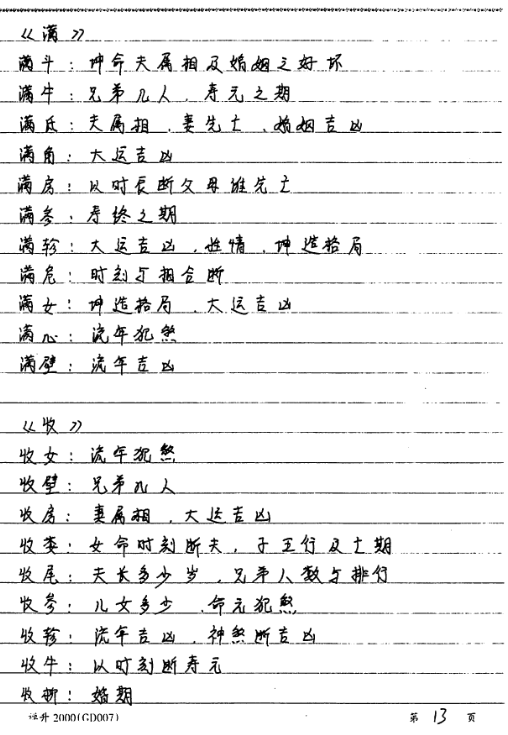 《满》
满斗：坤命夫属相及婚姻之好坏
满牛：兄弟几人、寿元之期
满氐：夫属相、妻先亡、婚姻吉凶
满角：大运吉凶
满房：以时辰断父母谁先亡
满参：寿终之期
满轸：大运吉凶、性情、坤造格局
满危：时刻与相合断
满女：坤造格局、大运吉凶
满心：流年犯煞
满壁：流年吉凶
《收》
收女：流年犯煞
收壁：兄弟几人
收房：妻属相、大运吉凶
收娄：女命时刻断夫，子五行及亡期
收尾：夫长多少岁、兄弟人数与排行
收参：儿女多少、命元犯煞
收轸：流年吉凶、神煞断吉凶
收牛：以时刻断寿元
收柳：婚期
2000(GD007)
第 13 页